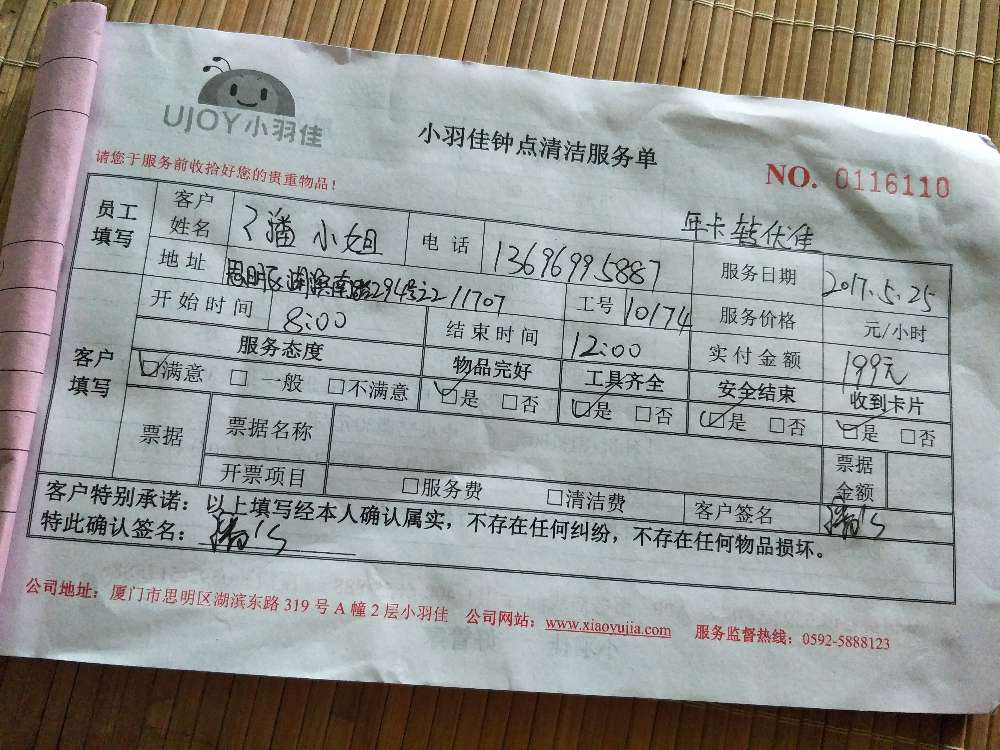 UJOY小羽佳
小羽佳钟点清洁服务单
NO. 0116110
请您于服务前收拾好您的贵重物品！
年卡转优准
员工填写 客户姓名 潘小姐 电话 13696995887 服务日期 2017.5.25
地址 思明区湖滨南路294号22 11707 工号 10174 服务价格 元/小时
开始时间 8:00 结束时间 12:00 实付金额 199元
客户填写 服务态度 物品完好 工具齐全 安全结束 收到卡片
☑满意 □一般 □不满意 ☑是 □否 ☑是 □否 ☑是 □否 ☑是 □否
票据 票据名称 票据金额
开票项目 □服务费 □清洁费 客户签名
客户特别承诺：以上填写经本人确认属实，不存在任何纠纷，不存在任何物品损坏。
特此确认签名：
公司地址：厦门市思明区湖滨东路 319 号 A 幢 2 层小羽佳 公司网站：www.xiaoyujia.com 服务监督热线：0592-5888123